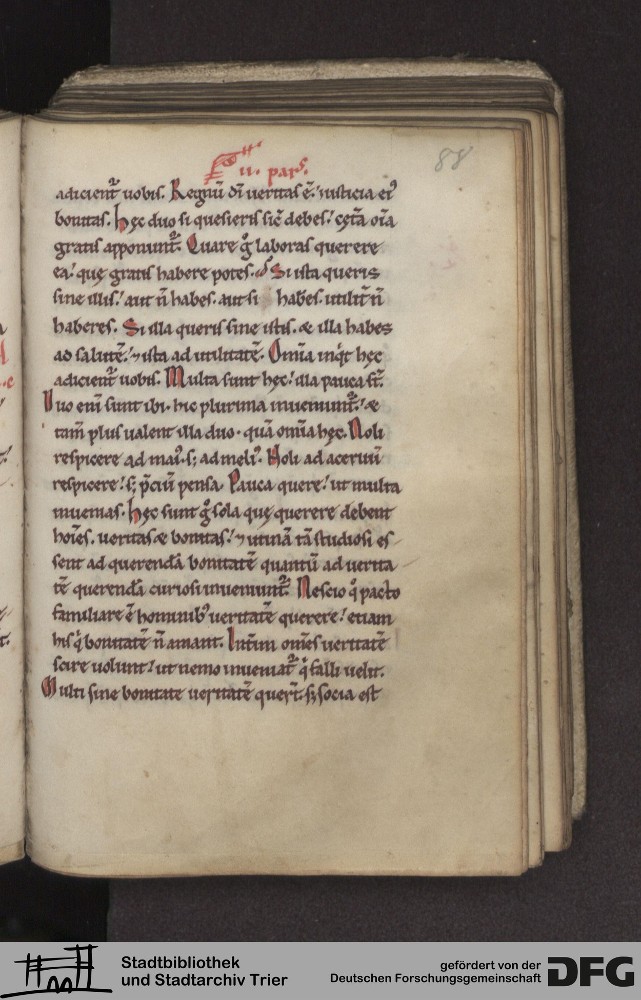 88
ii. pars.
adicient᷑ uobis. Regnū dī ueritas ē. ⁊ iusticia eiꝰ
bonitas. hęc duo si quesieris sic̄ debes. cęt̄a oīa
gratis apponunt᷑. Quare g̊ laboras querere
ea. quę gratis habere potes. Si ista queris
sine illis. aut n̄ habes. aut si habes. utilit̄ n̄
haberes. Si illa queris sine istis. & illa habes
ad salutē. ⁊ ista ad utilitatē. Omīa inqͥt hęc
adicient᷑ uobis. Multa sunt hęc. illa pauca st̄.
Duo enī sunt ibi. hic plurima inueniunt᷑. &
tam̄ plus ualent illa duo. quā omīa hęc. Noli
respicere ad maiꝰ. s; ad meliꝰ. Noli ad aceruū
respicere. s; p̄ciū pensa. Pauca quere. ut multa
inuenias. Hęc sunt g̊ sola quę querere debent
hoīes. ueritas & bonitas. ⁊ utinā tā studiosi es
sent ad querendā bonitatē quantū ad uerita
tē querendā curiosi inueniunt᷑. Nescio qͦ pacto
familiare ē hominibꝰ ueritatē querere. etiam
his qͥ bonitatē n̄ amant. Int̄im omēs ueritatē
scire uolunt. ut nemo inueniat᷑ qͥ falli uelit.
Multi sine bonitate ueritatē quer̄t. s; socia est
Stadtbibliothek
und Stadtarchiv Trier
gefördert von der
Deutschen Forschungsgemeinschaft
DFG